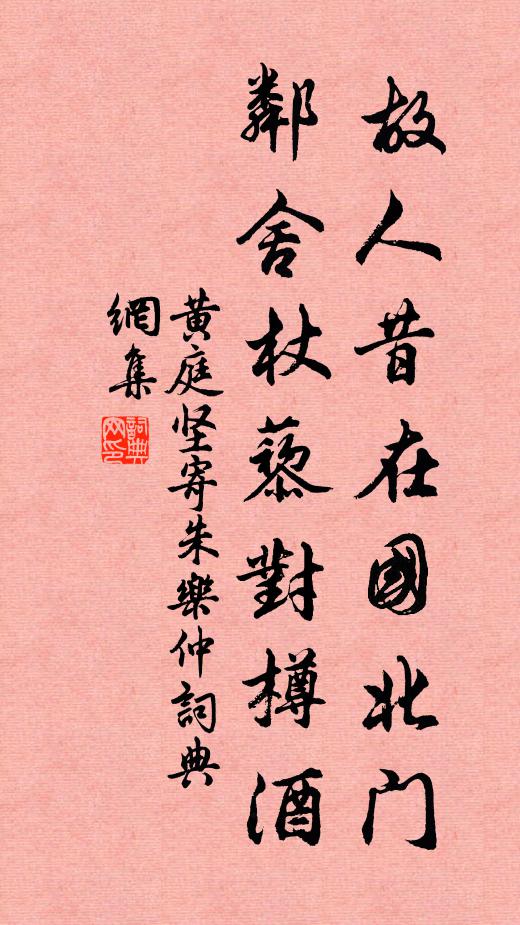 故人昔在國北门
鄰舍杖藜對樽酒
黄庭坚寄朱樂仲詞典
網集
詞典网印